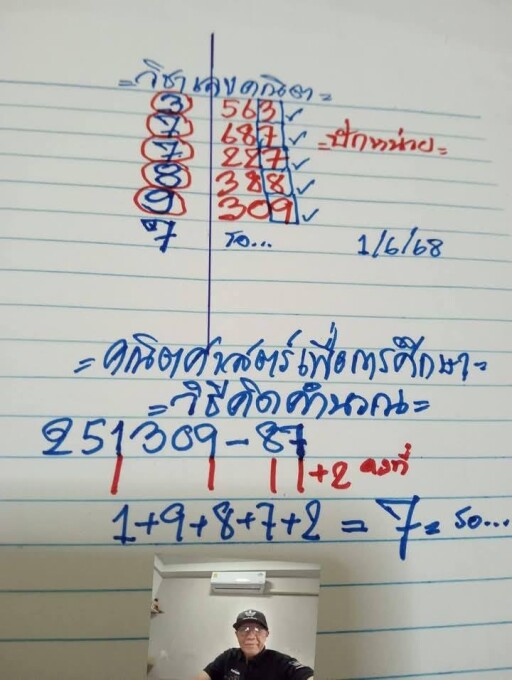 = วิชาเลขคณิต =
3 563 ✓
7 687 ✓ = ปักหน่วย =
7 227 ✓
8 388 ✓
9 309 ✓
7 รอ... 1/6/68
= คณิตศาสตร์เพื่อการศึกษา =
= วิธีคิดคำนวณ =
251309 - 87
+2 คงที่
1+9+8+7+2 = 7 = รอ...